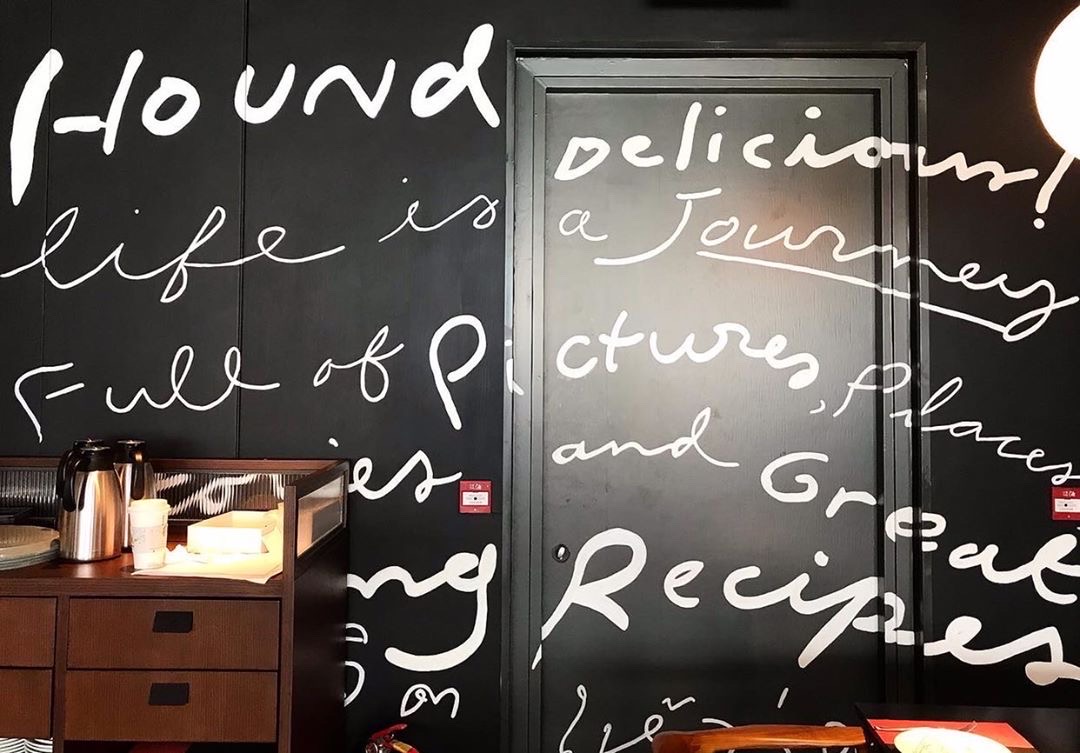 Hound Delicious!
life is a Journey
Full of Pictures, Places
and Great
Recipes
on